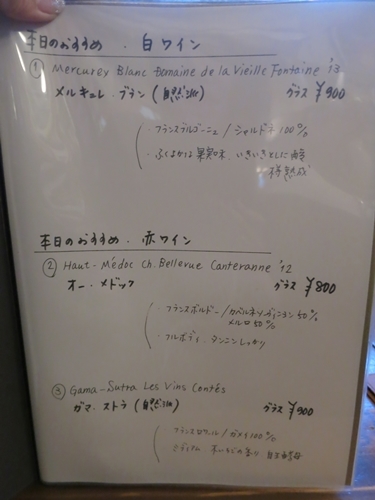 本日のおすすめ . 白ワイン
① Mercurey Blanc Domaine de la Vieille Fontaine '13
メルキュレ・ブラン (自然派) グラス ¥900
・フランスブルゴーニュ / シャルドネ 100%
・ふくよかな果実味、いきいきとした酸
樽熟成
本日のおすすめ . 赤ワイン
② Haut-Médoc Ch. Bellevue Canteranne '12
オー・メドック グラス ¥800
・フランスボルドー / カベルネソーヴィニヨン 50%
メルロ 50%
・フルボディ タンニンしっかり
③ Gama-Sutra Les Vins Contés
ガマ・ストラ (自然派) グラス ¥900
フランスロワール / ガメイ 100%
ミディアム 木いちごの香り